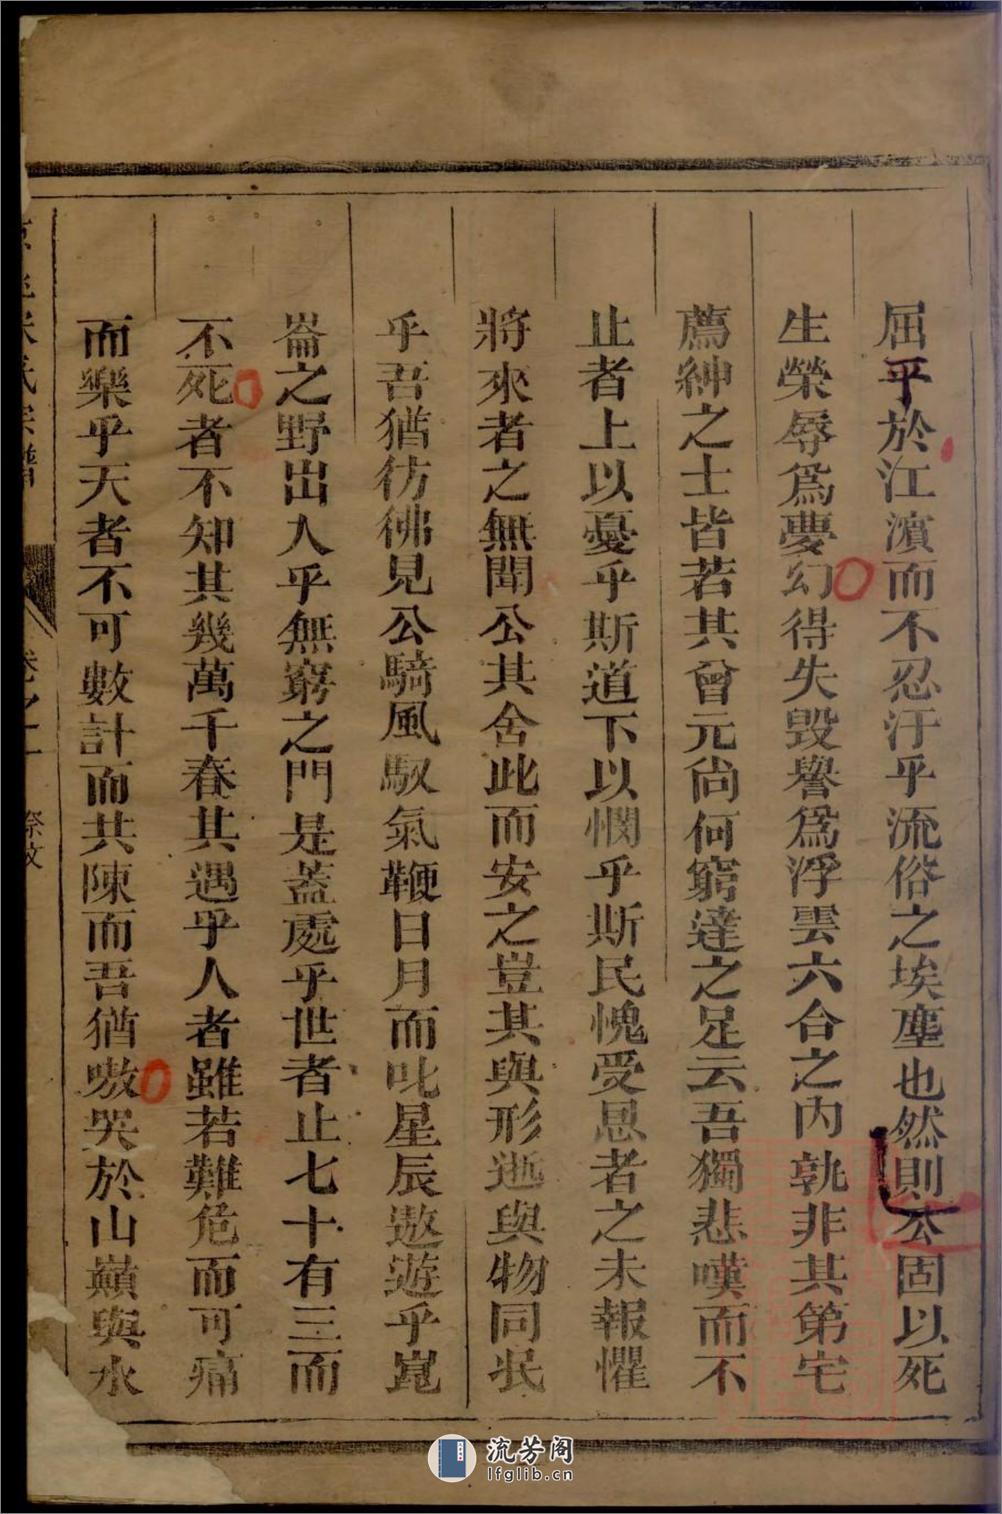 屈乎於江濵而不忍汙乎流俗之埃塵也然則公固以死
生榮辱爲夢幻得失毀譽爲浮雲六合之内孰非其第宅
薦紳之士皆若其曾元尙何窮達之足云吾獨悲嘆而不
止者上以憂乎斯道下以憫乎斯民愧受恩者之未報懼
將來者之無聞公其舍此而安之豈其與形逝與物同泯
乎吾猶彷彿見公騎風馭氣鞭日月而叱星辰遨遊乎崑
崙之野出入乎無窮之門是蓋處乎世者止七十有三而
不死者不知其幾萬千春其遇乎人者雖若難危而可痛
而樂乎天者不可數計而共陳而吾猶嗷哭於山巔與水
氏宗譜 卷之一 祭文
流芳阁
lfglib.cn